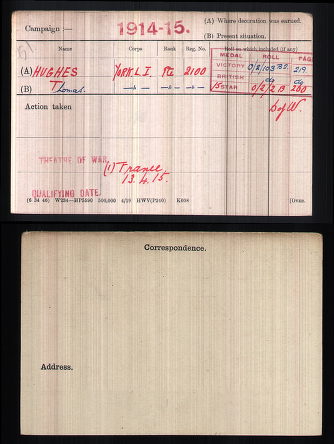 Campaign :— 1914-15.
(A) Where decoration was earned.
(B) Present situation.
Name Corps Rank Reg. No. Roll on which included (if any)
MEDAL ROLL PAGE
(A) HUGHES York L.I. Pte 2100 VICTORY O/2/103 B2. 219
BRITISH do do
(B) Thomas. —„— —„— —„— 15 STAR O/2/2 B 260
Action taken
D of W
THEATRE OF WAR. (1) France
QUALIFYING DATE. 13.4.15.
(6 34 46) W234—HP5590 500,000 4/19 HWV(P240) K608 [Over.
Correspondence.
Address.